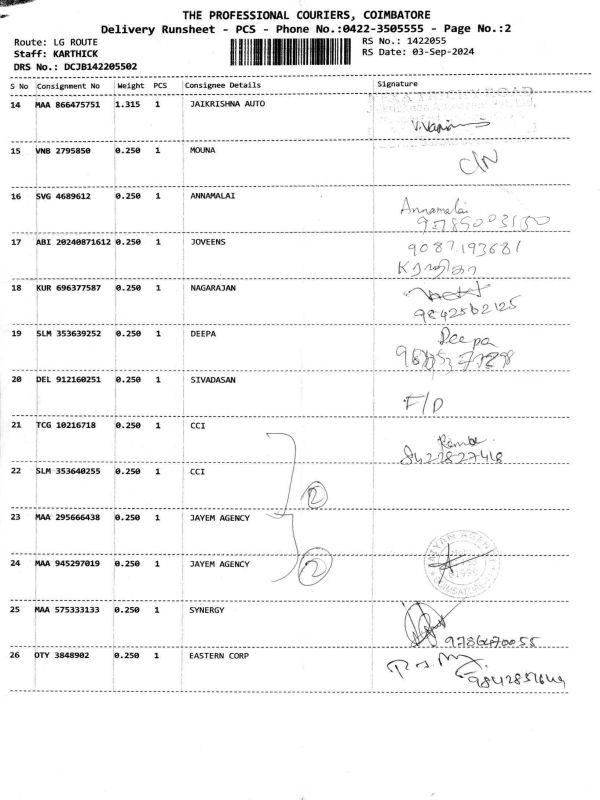 THE PROFESSIONAL COURIERS, COIMBATORE
Delivery Runsheet - PCS - Phone No.:0422-3505555 - Page No.:2
Route: LG ROUTE RS No.: 1422055
Staff: KARTHICK RS Date: 03-Sep-2024
DRS No.: DCJB142205502
S No Consignment No Weight PCS Consignee Details Signature
14 MAA 866475751 1.315 1 JAIKRISHNA AUTO
15 VNB 2795850 0.250 1 MOUNA C/N
16 SVG 4689612 0.250 1 ANNAMALAI Annamalai
17 ABI 20240871612 0.250 1 JOVEENS 9087193681
18 KUR 696377587 0.250 1 NAGARAJAN
9842562125
19 SLM 353639252 0.250 1 DEEPA Deepa
20 DEL 912160251 0.250 1 SIVADASAN F/D
21 TCG 10216718 0.250 1 CCI
8422827418
22 SLM 353640255 0.250 1 CCI
2
23 MAA 295666438 0.250 1 JAYEM AGENCY
24 MAA 945297019 0.250 1 JAYEM AGENCY 2
25 MAA 575333133 0.250 1 SYNERGY
9786470055
26 OTY 3848902 0.250 1 EASTERN CORP